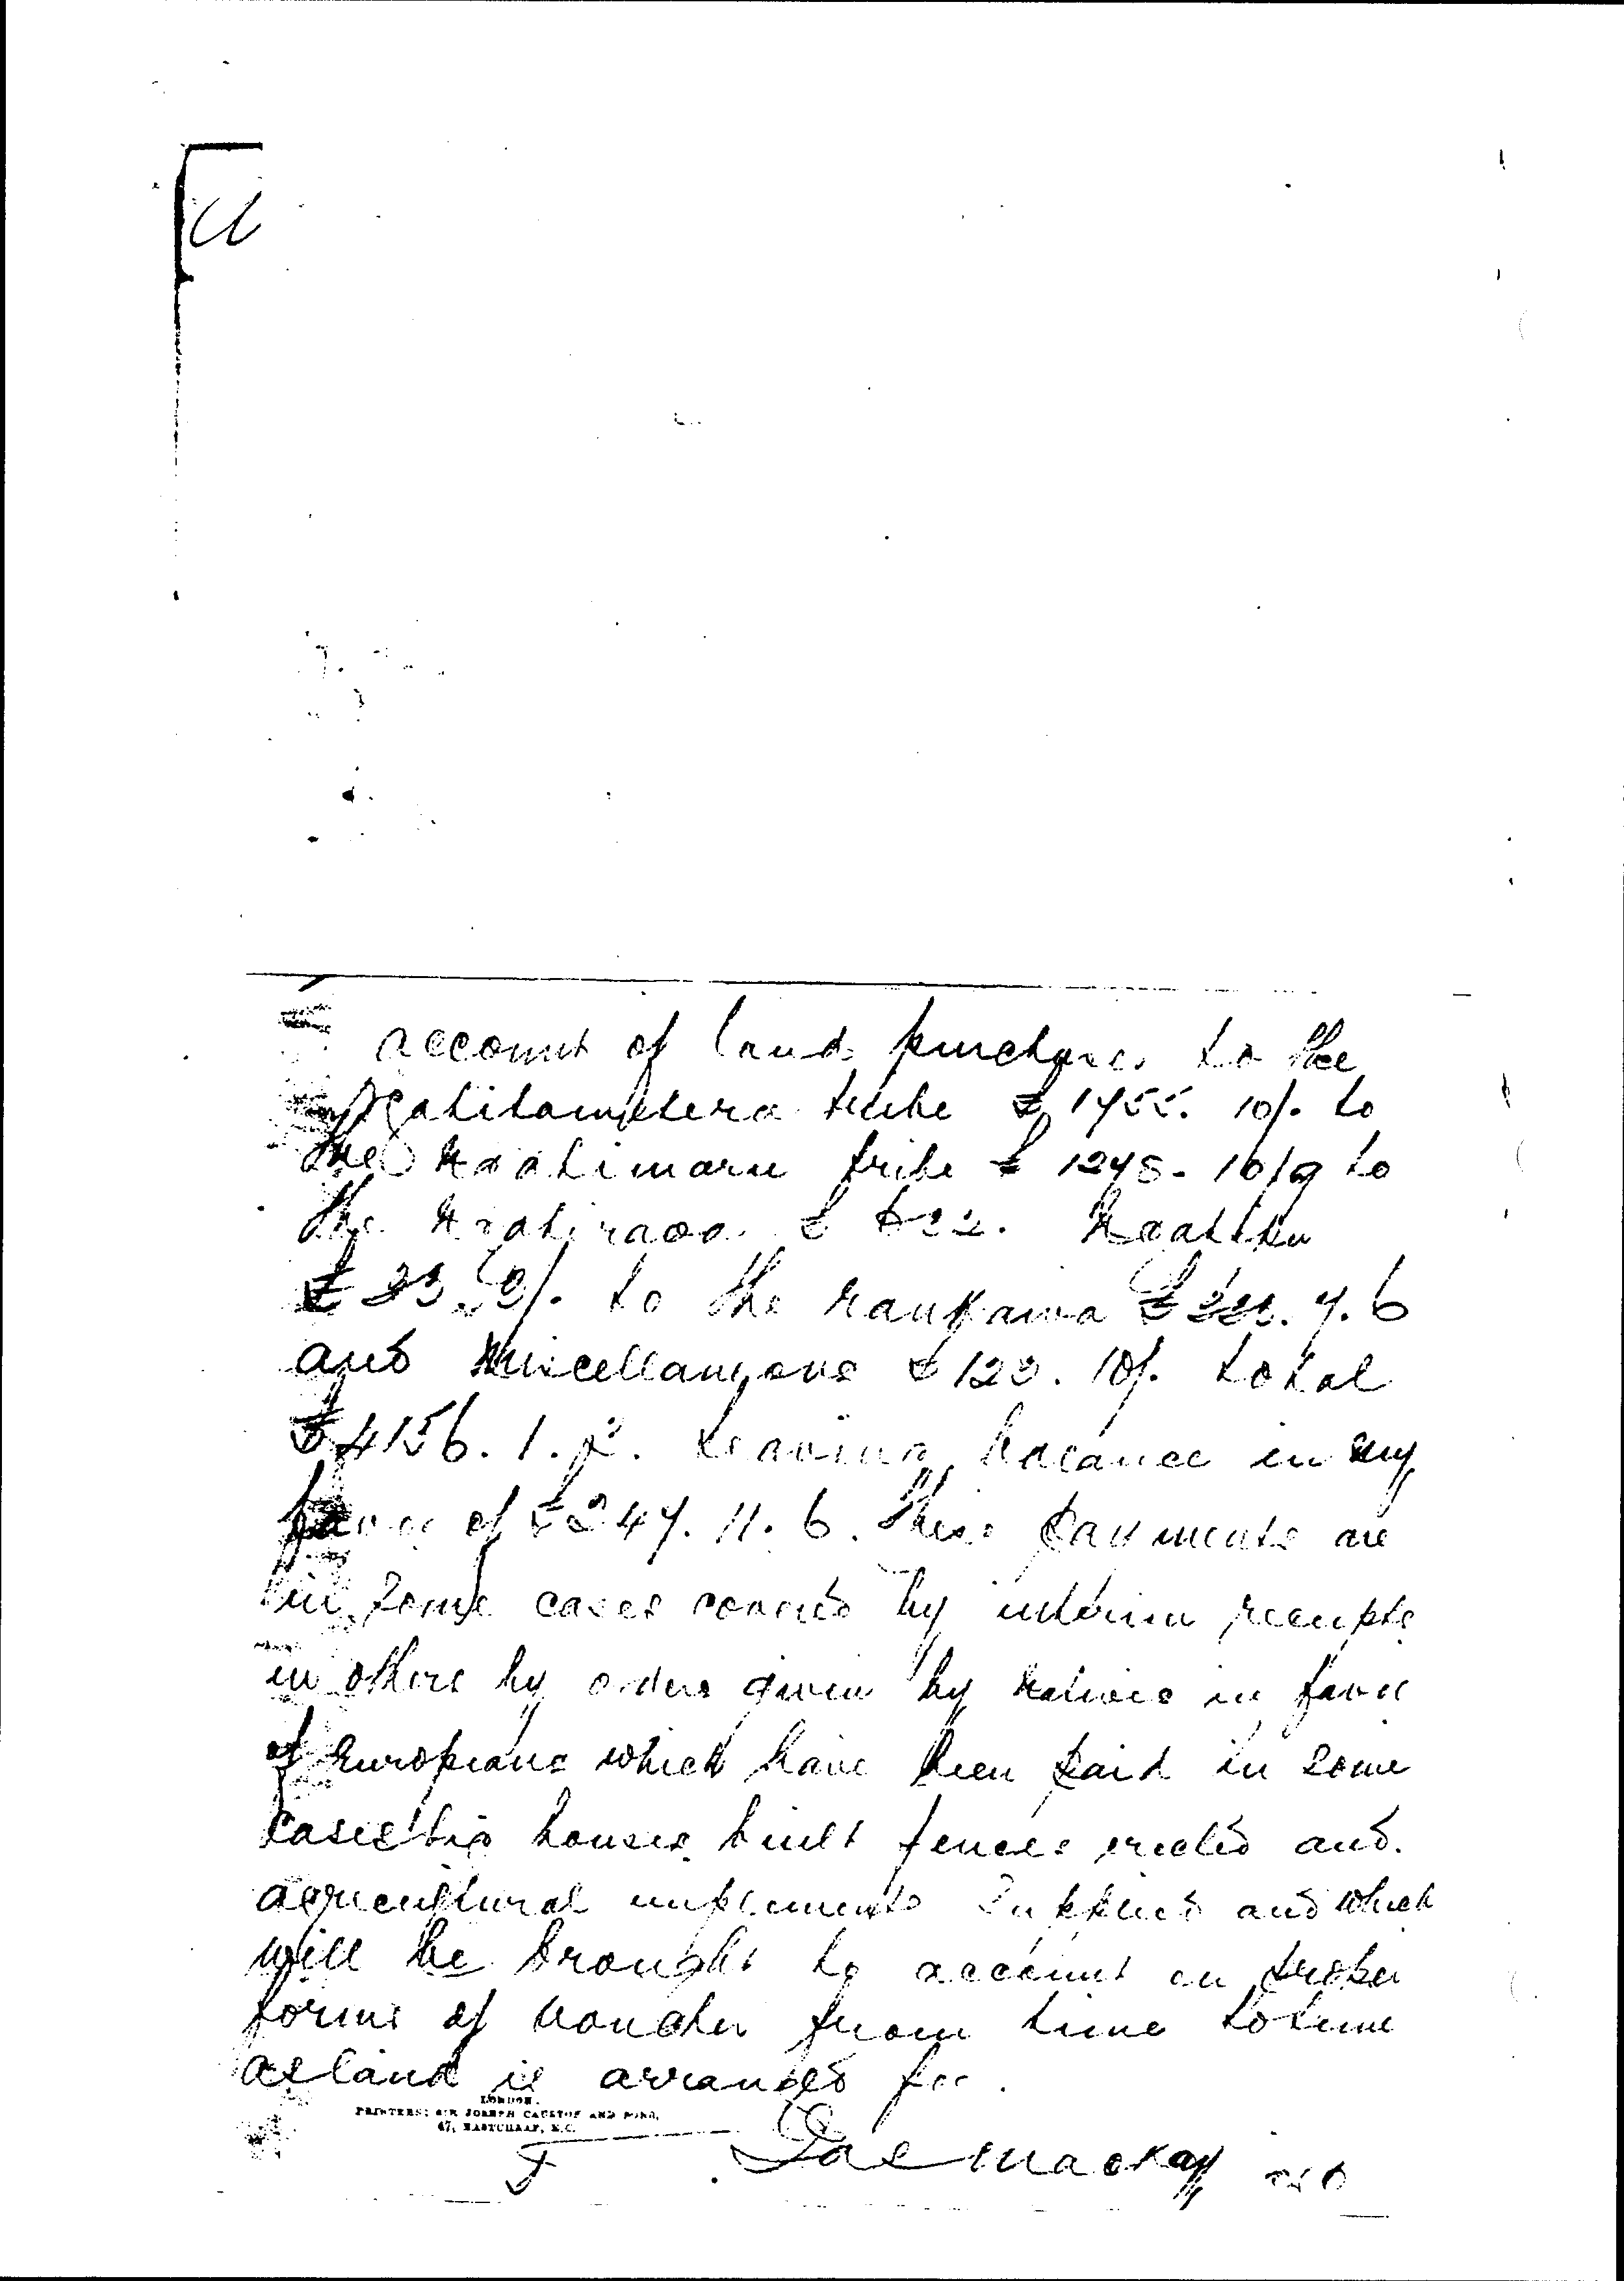 account of land purchases to the
Ngatitamatera tribe £1755. 10/- to
the Ngatimaru tribe £ 1278- 16/9 to
the Ngatipaoa £ 622.
to the raukawa 7. 6
and Miscellaneous £ 123. 10/- total
£4156. 1. 2. leaving balance in my
favor of £247. 11. 6. these payments are
in some cases covered by interim receipts
in others by orders given by natives in favor
of Europeans which have been paid in some
cases houses built fences erected and
agricultural implements supplied and which
will be brought to account on proper
forms of voucher from time to time
as land is arranged for.
LONDON.
PRINTERS: SIR JOSEPH CAUSTON AND SONS,
47, EASTCHEAP, E.C.
Jas Mackay